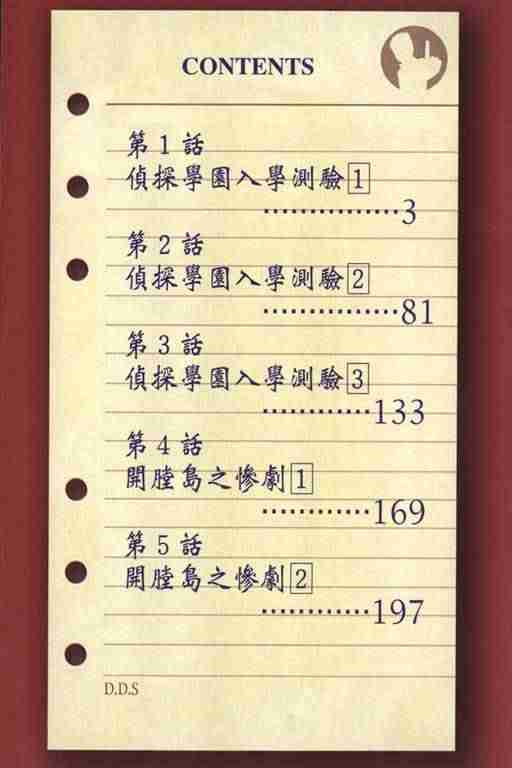 CONTENTS
第1話
偵探學園入學測驗1
……………3
第2話
偵探學園入學測驗2
……………81
第3話
偵探學園入學測驗3
…………133
第4話
開膛島之慘劇1
…………169
第5話
開膛島之慘劇2
…………197
D.D.S